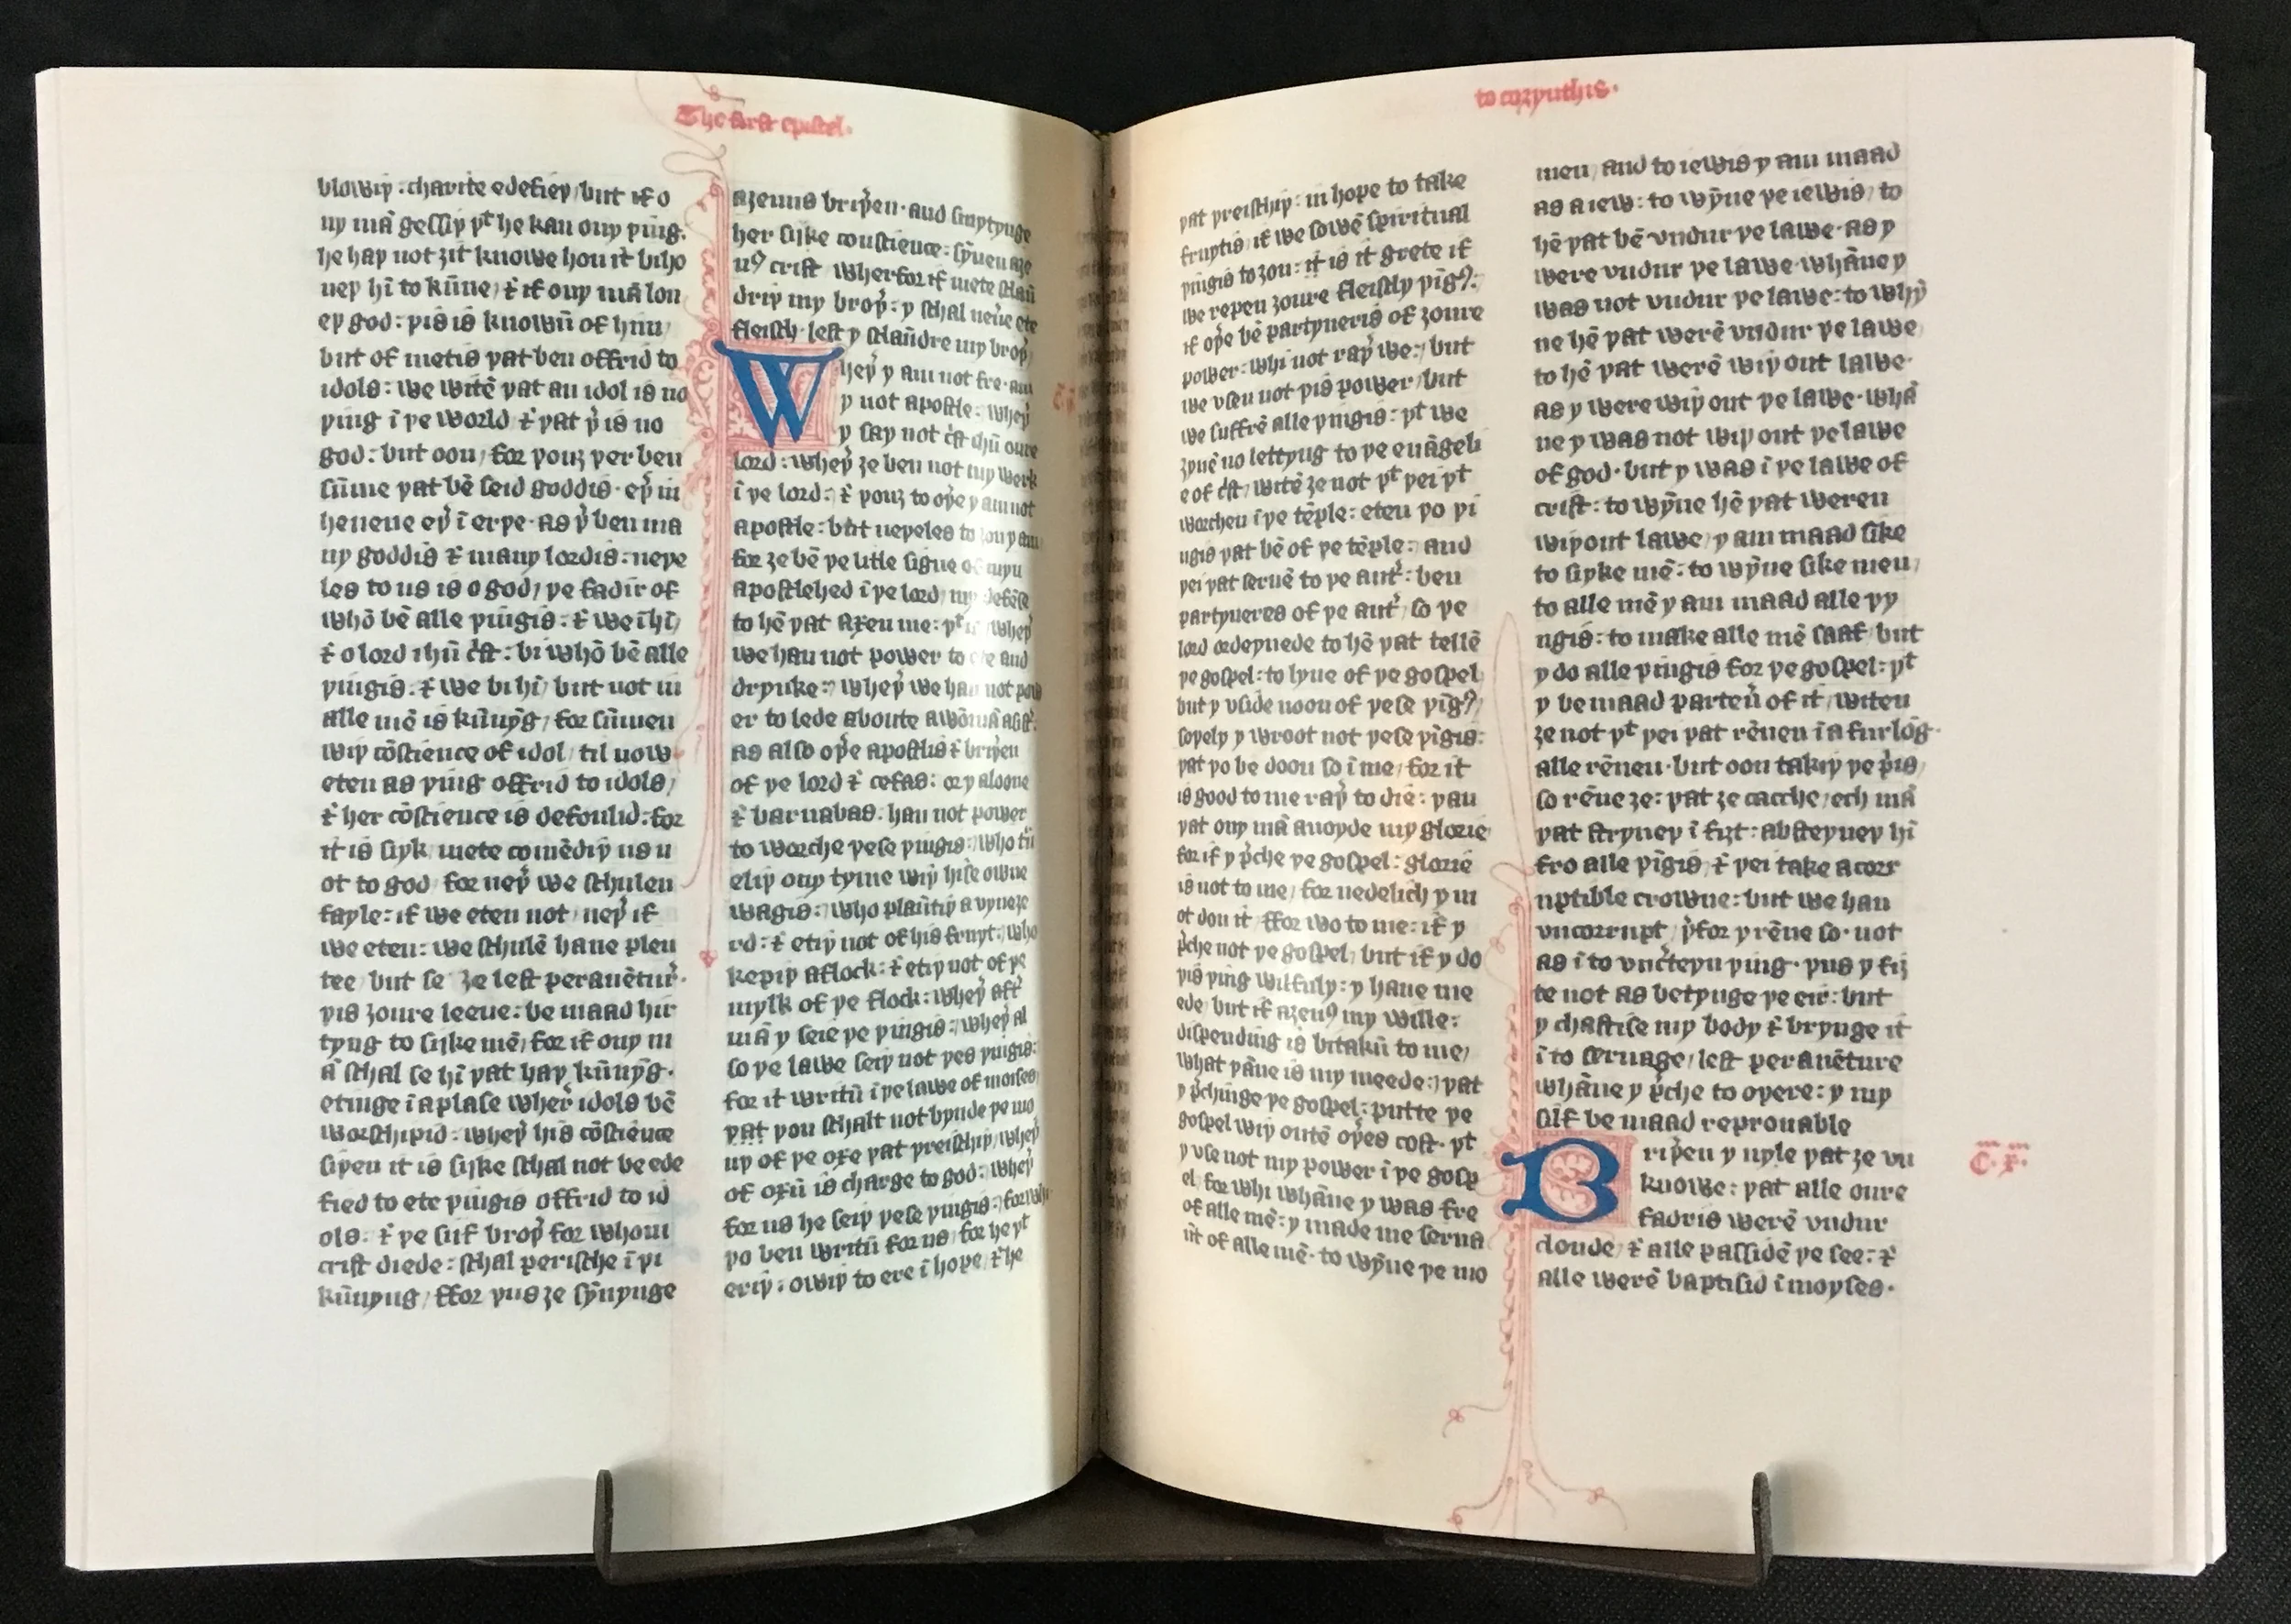 The first epistel.
blowiþ : charite edefieþ / but if o
ny mā gessiþ þͭ he kan ony þing.
he haþ not ȝit knowe hou it biho
ueþ hī to kūne / ⁊ if ony mā lou
eþ god : þis is knowū of hym /
but of metis þat ben offrid to
idols : we witē þat an idol is no
þing ī þe world ⁊ þat þ̉ is no
god : but oon / for þouȝ þer ben
sūme þat bē seid goddis · eþ̉ in
heuene eþ̉ ī erþe · as þ̉ ben ma
ny goddis ⁊ many lordis : neþe
les to us is o god / þe fadir of
whō bē alle þingis : ⁊ we ī hī /
⁊ o lord ihū c̄st : bi whō bē alle
þingis : ⁊ we bi hī / but not in
alle mē is kūnȳg / for sūmen
wiþ cōscience of idol / til now
eten as þing offrid to idols /
⁊ her cōscience is defoulid : for
it is siyk / mete comēdiþ us n
ot to god / for neþ̉ we schulen
fayle : if we eten not / neþ̉ if
we eten : we schulē haue plen
tee / but se ȝe lest perauētur̉ ·
þis ȝoure leeue : be maad hir
tyng to sijke mē / for if ony m
ā schal se hī þat haþ kūnȳg ·
etinge ī a place wher̉ idols bē
worschipid : wheþ̉ his cōscience
siþen it is sijke schal not be ede
fied to ete þingis offrid to id
ols · ⁊ þe sijk broþ̉ for whom
crist diede : schal perische ī þi
kūnyng / ffor þus ȝe sȳnynge
aȝenus briþ̉en · and smytynge
her sijke conscience : sȳnen aȝe
nꝰ crist wherfor if mete sclaū
driþ my broþ̉ : y schal neủe ete
fleisch · lest y sclaūdre my broþ̉
Wheþ̉ y am not fre · am
y not apostle : wheþ̉
y say not c̄st ihū oure
lord : wheþ̉ ȝe ben not my werk
ī þe lord : ⁊ þouȝ to oþ̉e y am not
apostle : but neþeles to ȝou y am
for ȝe bē þe litle signe of myn
apostlehed ī þe lord / my defēse
to hē þat axen me : þͭ is / wheþ̉
we han not power to ete and
drynke : wheþ̉ we han not pow
er to lede aboute a wōmā a sist̉ :
as also oþ̉e apostlis ⁊ briþ̉en
of þe lord ⁊ cefas : or y aloone
⁊ barnabas : han not power
to worche þese þingis : who tū
eliþ ony tyme wiþ hise owne
wagis : who plaūtiþ a vyneȝe
rd : ⁊ etiþ not of his fruyt : who
kepiþ a flock : ⁊ etiþ not of þe
mylk of þe flock : wheþ̉ aft̉
mā y seie þe þingis : wheþ̉ al
so þe lawe seiþ not þes þingis :
for it writū ī þe lawe of moises
þat þou schalt not bynde þe mo
uþ of þe oxe þat þreischiþ / wheþ̉
of oxū is charge to god : wheþ̉
for us he seiþ þese þingis : for whi
þo ben writū for us / for he þͭ
eriþ : owiþ to ere ī hope / ⁊ he
to corynthis ·
þat þreischiþ : in hope to take
fruytis / if we sowē spiritual
þingis to ȝou : it is it grete if
we repen ȝoure fleischly þīgꝭ :
if oþ̉e bē partyneris of ȝoure
power : whi not raþ̉ we : / but
we vsen not þis power / but
we suffrē alle þingis : þͭ we
ȝyuē no lettyng to þe euāgeli
e of c̄st / witē ȝe not þͭ þei þͭ
worchen ī þe tēple : eten þo þi
ngis þat bē of þe tēple : and
þei þat seruē to þe aut̉ : ben
partyneres of þe aut̉ / so þe
lord ordeynede to hē þat tellē
þe gospel : to lyue of þe gospel
but y vside noon of þese þīgꝭ /
soþely y wroot not þese þīgis :
þat þo be doon so ī me / for it
is good to me raþ̉ to die : þan
þat ony mā auoyde my glorie
for if y p̉che þe gospel : glorie
is not to me / for nedelich y m
ot don it ffor wo to me : if y
p̉che not þe gospel / but if y do
þis þing wilfuly : y haue me
ede / but if aȝenꝰ my wille :
dispending is bitakū to me /
what þāne is my meede : þat
y p̉chinge þe gospel : putte þe
gospel wiþ outē oþ̉es cost · þͭ
y vse not my power ī þe gosp
el / for whi whāne y was fre
of alle mē : y made me serua
ūt of alle mē · to wȳne þe mo
men / and to iewis y am maad
as a iew : to wȳne þe iewis / to
hē þat bē vndur þe lawe · as y
were vndur þe lawe · whāne y
was not vndur þe lawe : to wȳ
ne hē þat werē vndur þe lawe /
to hē þat werē wiþ out lawe ·
as y were wiþ out þe lawe · whā
ne y was not wiþ out þe lawe
of god · but y was ī þe lawe of
crist : to wȳne hē þat weren
wiþ out lawe / y am maad sike
to siyke mē : to wȳne sike men /
to alle mē y am maad alle þi
ngis : to make alle mē saaf / but
y do alle þingis for þe gospel : þͭ
y be maad parten̉ of it / witen
ȝe not þͭ þei þat rēnen ī a furlōg ·
alle rēnen · but oon takiþ þe p̉is /
so rēne ȝe : þat ȝe cacche / ech mā
þat stryueþ ī fiȝt : absteyneþ hī
fro alle þīgis / ⁊ þei take a corr
uptible crowne : but we han
vncorrupt / þ̉for y rēne so · not
as ī to vnc̉teyn þing · þus y fiȝ
te not as betynge þe eir : but
y chastise my body ⁊ brynge it
ī to seruage / lest perauēture
whāne y p̉che to oþere : y my
silf be maad reprouable
Briþ̉en y nyle þat ȝe vn
knowe : þat alle oure
fadris werē vndur
cloude / ⁊ alle passidē þe see : ⁊
alle werē baptisid ī moyses ·
C · x ·